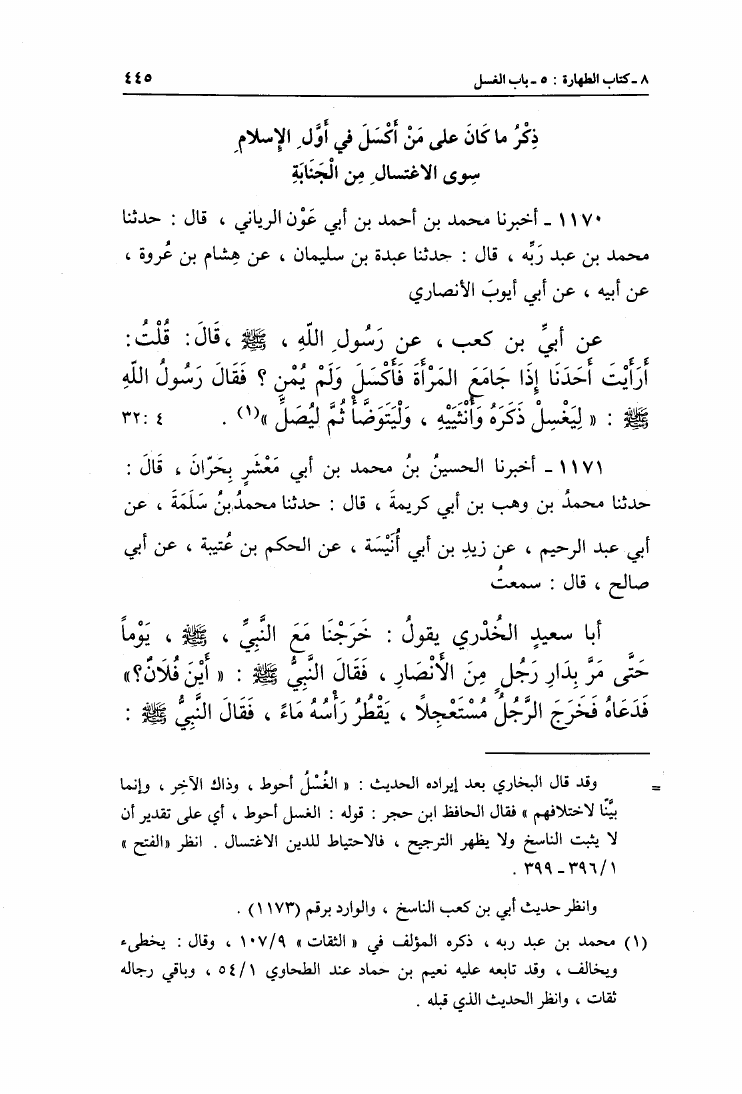 ٨ ـ كتاب الطهارة : ٥ ـ باب الغسل ٤٤٥
ذِكْرُ ما كَانَ على مَنْ أَكْسَلَ في أَوَّلِ الإِسلامِ
سِوى الاغتسالِ مِن الْجَنَابَةِ
١١٧٠ ـ أخبرنا محمد بن أحمد بن أبي عَوْن الرياني ، قال : حدثنا
محمد بن عبد رَبِّه ، قال : حدثنا عبدة بن سليمان ، عن هِشام بن عُروة ،
عن أبيه ، عن أبي أيوبَ الأنصاري
عن أبيِّ بن كعب ، عن رَسُولِ اللَّهِ ، ﷺ ، قَالَ : قُلْتُ :
أَرَأَيْتَ أَحَدَنَا إِذَا جَامَعَ المَرْأَةَ فَأَكْسَلَ وَلَمْ يُمْنِ ؟ فَقَالَ رَسُولُ اللَّهِ
ﷺ : « لِيَغْسِلْ ذَكَرَهُ وَأُنْثَيَيْهِ ، وَلْيَتَوَضَّأْ ثُمَّ لْيُصَلِّ »(١) . ٤ :٣٢
١١٧١ ـ أخبرنا الحسينُ بنُ محمد بن أبي مَعْشَرٍ بِحَرَّانَ ، قَالَ :
حدثنا محمدُ بن وهب بن أبي كريمةَ ، قال : حدثنا محمدُ بنُ سَلَمَةَ ، عن
أبي عبد الرحيم ، عن زيدِ بن أبي أُنَيْسَة ، عن الحكم بن عُتيبة ، عن أبي
صالح ، قال : سمعتُ
أبا سعيدٍ الخُدْري يقولُ : خَرَجْنَا مَعَ النَّبِيِّ ، ﷺ ، يَوْماً
حَتَّى مَرَّ بِدَارِ رَجُلٍ مِنَ الأَنْصَارِ ، فَقَالَ النَّبِيُّ ﷺ : « أَيْنَ فُلَانٌ؟»
فَدَعَاهُ فَخَرَجَ الرَّجُلُ مُسْتَعْجِلاً ، يَقْطُرُ رَأْسُهُ مَاءً ، فَقَالَ النَّبِيُّ ﷺ :
= وقد قال البخاري بعد إيراده الحديث : « الغُسْلُ أحوط ، وذاك الآخِر ، وإنما
بيَّنَّا لاختلافهم » فقال الحافظ ابن حجر : قوله : الغسل أحوط ، أي على تقدير أن
لا يثبت الناسخ ولا يظهر الترجيح ، فالاحتياط للدين الاغتسال . انظر «الفتح »
٣٩٦/١ ـ ٣٩٩ .
وانظر حديث أبي بن كعب الناسخ ، والوارد برقم (١١٧٣) .
(١) محمد بن عبد ربه ، ذكره المؤلف في « الثقات » ١٠٧/٩ ، وقال : يخطىء
ويخالف ، وقد تابعه عليه نعيم بن حماد عند الطحاوي ٥٤/١ ، وباقي رجاله
ثقات ، وانظر الحديث الذي قبله .